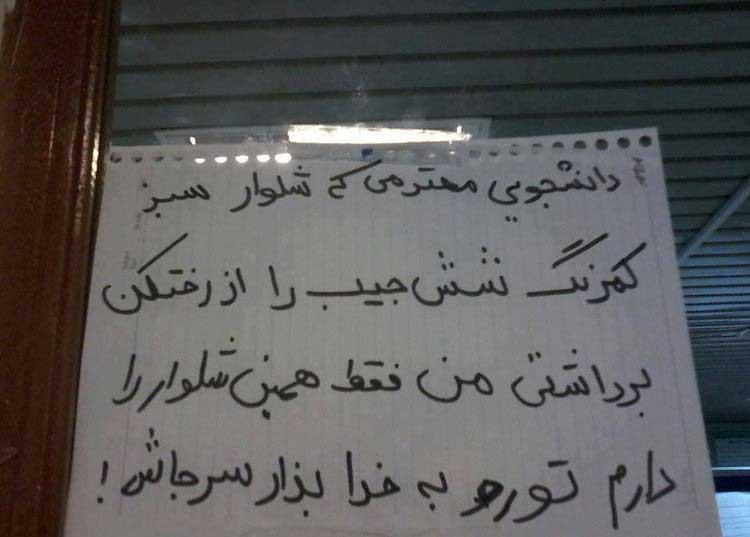 دانشجویی محترمی که شلوار سبز
کمرنگ شش جیب را از رختکن
برداشتی من فقط همین شلوار را
دارم تورو به خدا بذار سرجاش!